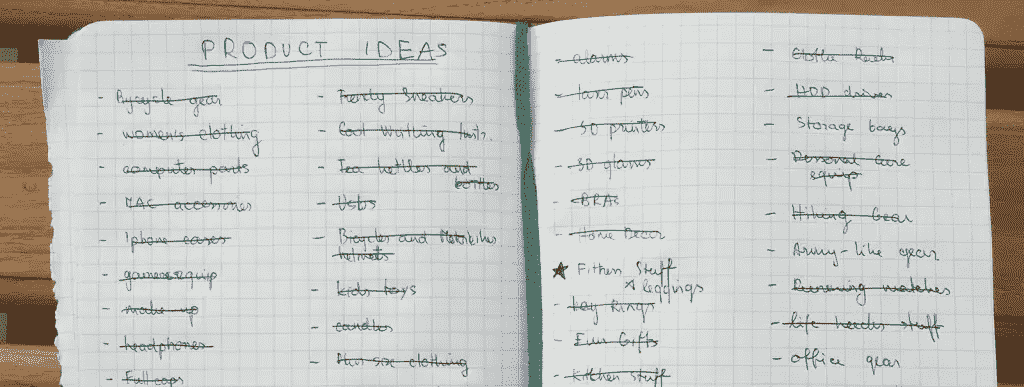 PRODUCT IDEAS
- Bycycle gear
- women's clothing
- computer parts
- MAC accessories
- Iphone cases
- gamers equip
- make-up
- headphones
- Full caps
- Trendy Sneakers
- Cool
- Tea kettles and
bottles
- Usbs
- Bicycles and
helmets
- kids toys
- candles
- Plus size clothing
- alarms
- laser pens
- 3D printers
- 3D glasses
- BRAs
- Home Decor
★ Fitness Stuff
leggings
- key Rings
- Gifts
- Kitchen stuff
- HDD drives
- Storage bags
- Personal Care
equip
- Hiking Gear
- Army-like gear
- Running watches
- life hacks stuff
- office gear